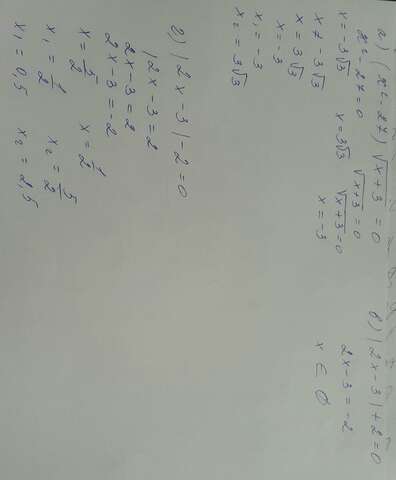 а) (x² - 27) √x+3 = 0
x² - 27 = 0 √x+3 = 0
x = -3√3 x = 3√3 √x+3 = 0
x ≠ -3√3 x = -3
x = 3√3
x = -3
x₁ = -3
x₂ = 3√3
в) |2x-3|+2=0
2x-3=-2
x ∈ ∅
г) |2x-3|-2=0
|2x-3=2
2x-3=2
2x-3=-2
x=5/2 x=1/2
x₁=1/2 x₂=5/2
x₁=0,5 x₂=2,5